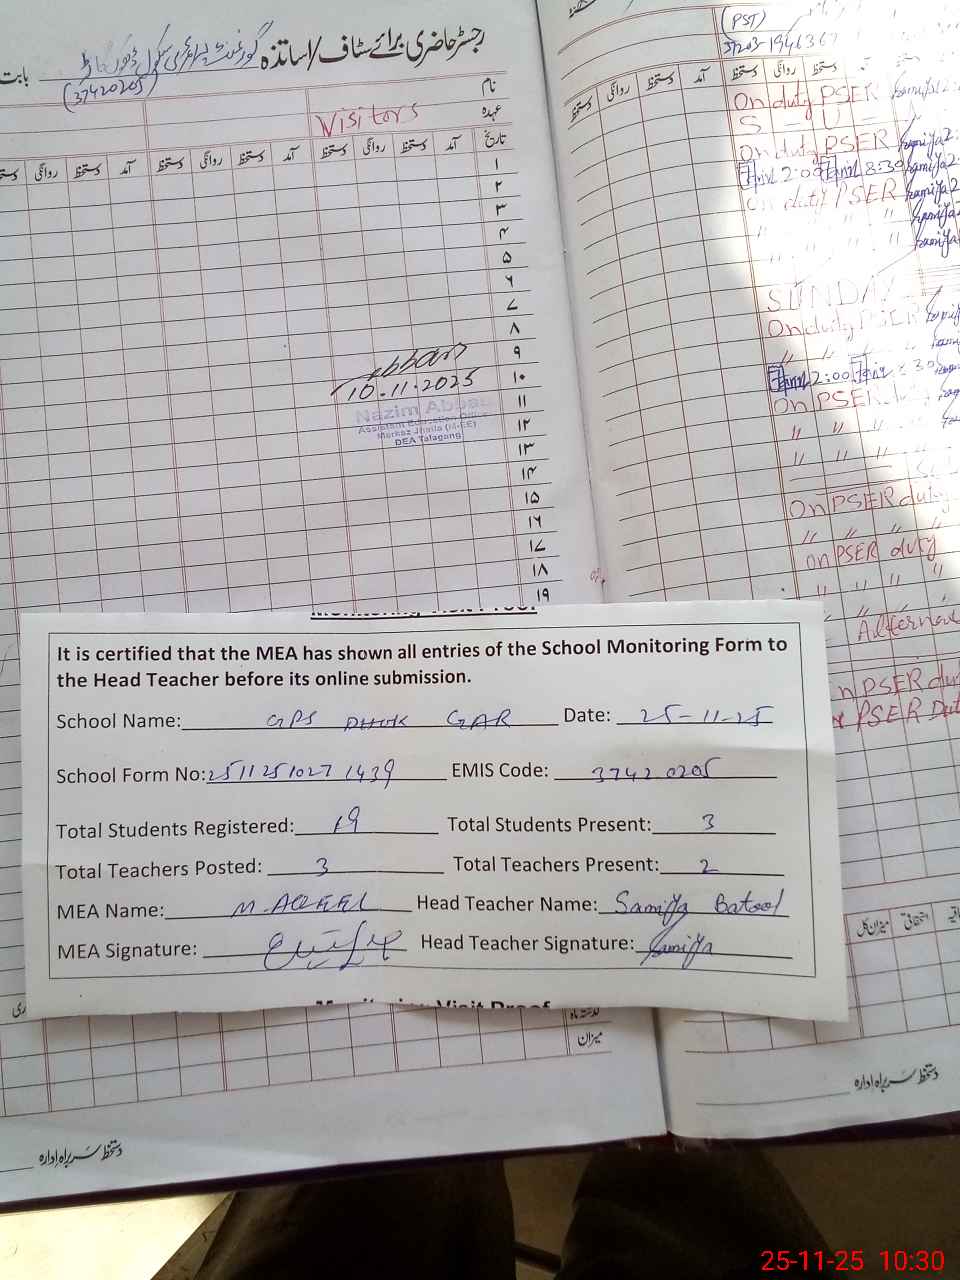 رجسٹر حاضری برائے سٹاف/اساتذہ گورنمنٹ پرائمری سکول ڈھوک گاڑ بابت
(37420205)
نام
عہدہ
Visitors
تاریخ
آمد دستخط روانگی دستخط آمد دستخط روانگی دستخط آمد دستخط روانگی
۱
۲
۳
۴
۵
۶
۷
۸
۹
۱۰
۱۱
۱۲
۱۳
۱۴
۱۵
۱۶
۱۷
۱۸
۱۹
10.11.2025
Nazim Abbas
Assistant Education Officer
Markaz Jhatla (M-EE)
DEA Talagang
(PST)
دستخط روانگی دستخط آمد دستخط روانگی دستخط
On duty PSER
S - U -
On duty PSER
2:00 8:30
On duty PSER
" " " "
SUNDAY
On duty PSER
2:00
On PSER
" " "
" " "
On PSER duty
" " " "
on PSER duty
" " " "
Alternate
n PSER du
PSER Dut
Monitoring Visit Proof
It is certified that the MEA has shown all entries of the School Monitoring Form to
the Head Teacher before its online submission.
School Name: GPS DHOK GAR Date: 25-11-25
School Form No: 2511251027 1439 EMIS Code: 37420205
Total Students Registered: 19 Total Students Present: 3
Total Teachers Posted: 3 Total Teachers Present: 2
MEA Name: M. AQEEL Head Teacher Name: Samiya Batool
MEA Signature: Head Teacher Signature: Samiya
Monitoring Visit Proof
گذشتہ ماہ
میزان
میزان کل اتفاقی
دستخط سربراہ ادارہ
دستخط سربراہ ادارہ
25-11-25 10:30